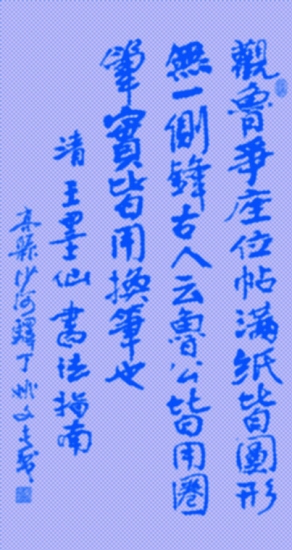 觀魯爭座位帖滿紙皆圓形
無一側鋒古人云魯公皆用圈
筆實皆用換筆也
清王墨仙書法指南